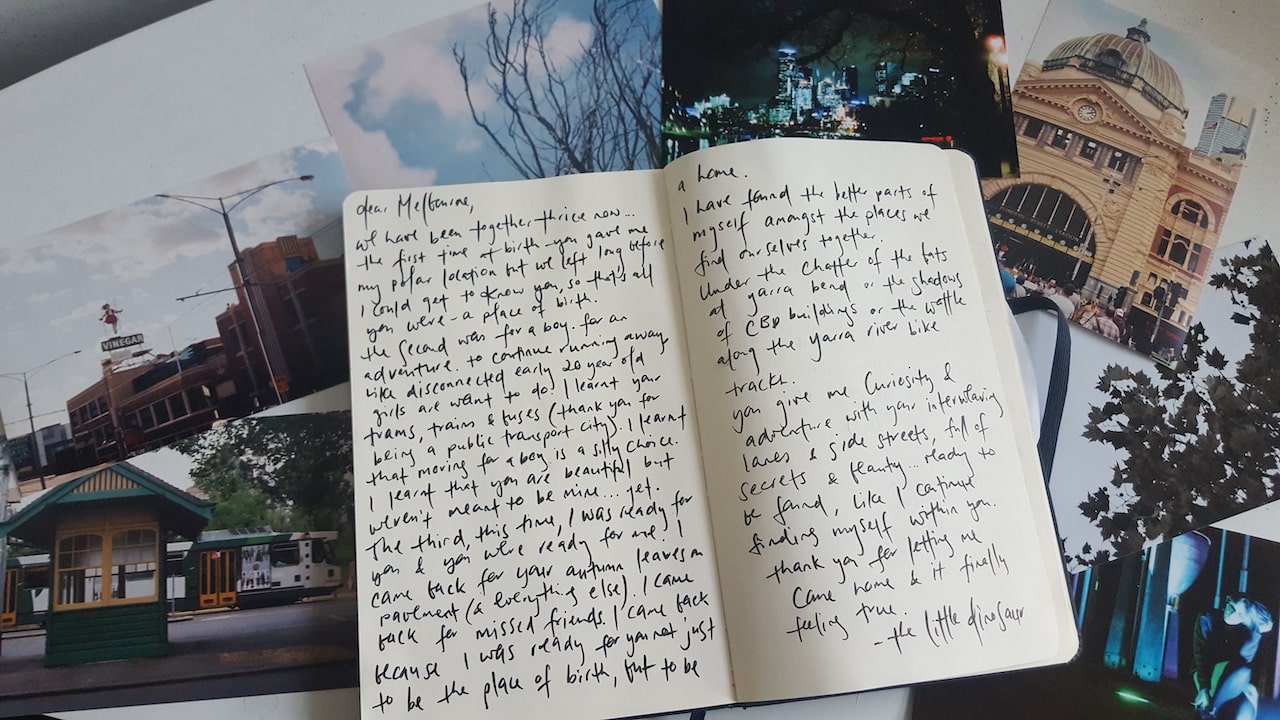 VINEGAR
dear Melbourne,
we have been together thrice now...
the first time at birth - you gave me
my polar location but we left long before
I could get to know you, so that's all
you were - a place of birth.
the second was for a boy. for an
adventure. to continue running away
like disconnected early 20 year old
girls are want to do. I learnt your
trams, trains & buses (thank you for
being a public transport city). I learnt
that moving for a boy is a silly choice.
I learnt that you are beautiful but
weren't meant to be mine... yet.
The third, this time, I was ready for
you & you were ready for me. I
came back for your autumn leaves on
pavement (& everything else). I came
back for missed friends. I came back
because I was ready for you not just
to be the place of birth, but to be
a home.
I have found the better parts of
myself amongst the places we
find ourselves together.
Under the chatter of the bats
at yarra bend or the shadows
of CBD buildings or the wattle
along the yarra river bike
tracks.
you give me curiosity &
adventure with your interweaving
lanes & side streets, full of
secrets & beauty... ready to
be found, like I continue
finding myself within you.
thank you for letting me
come home & it finally
feeling true.
- the little dinosaur